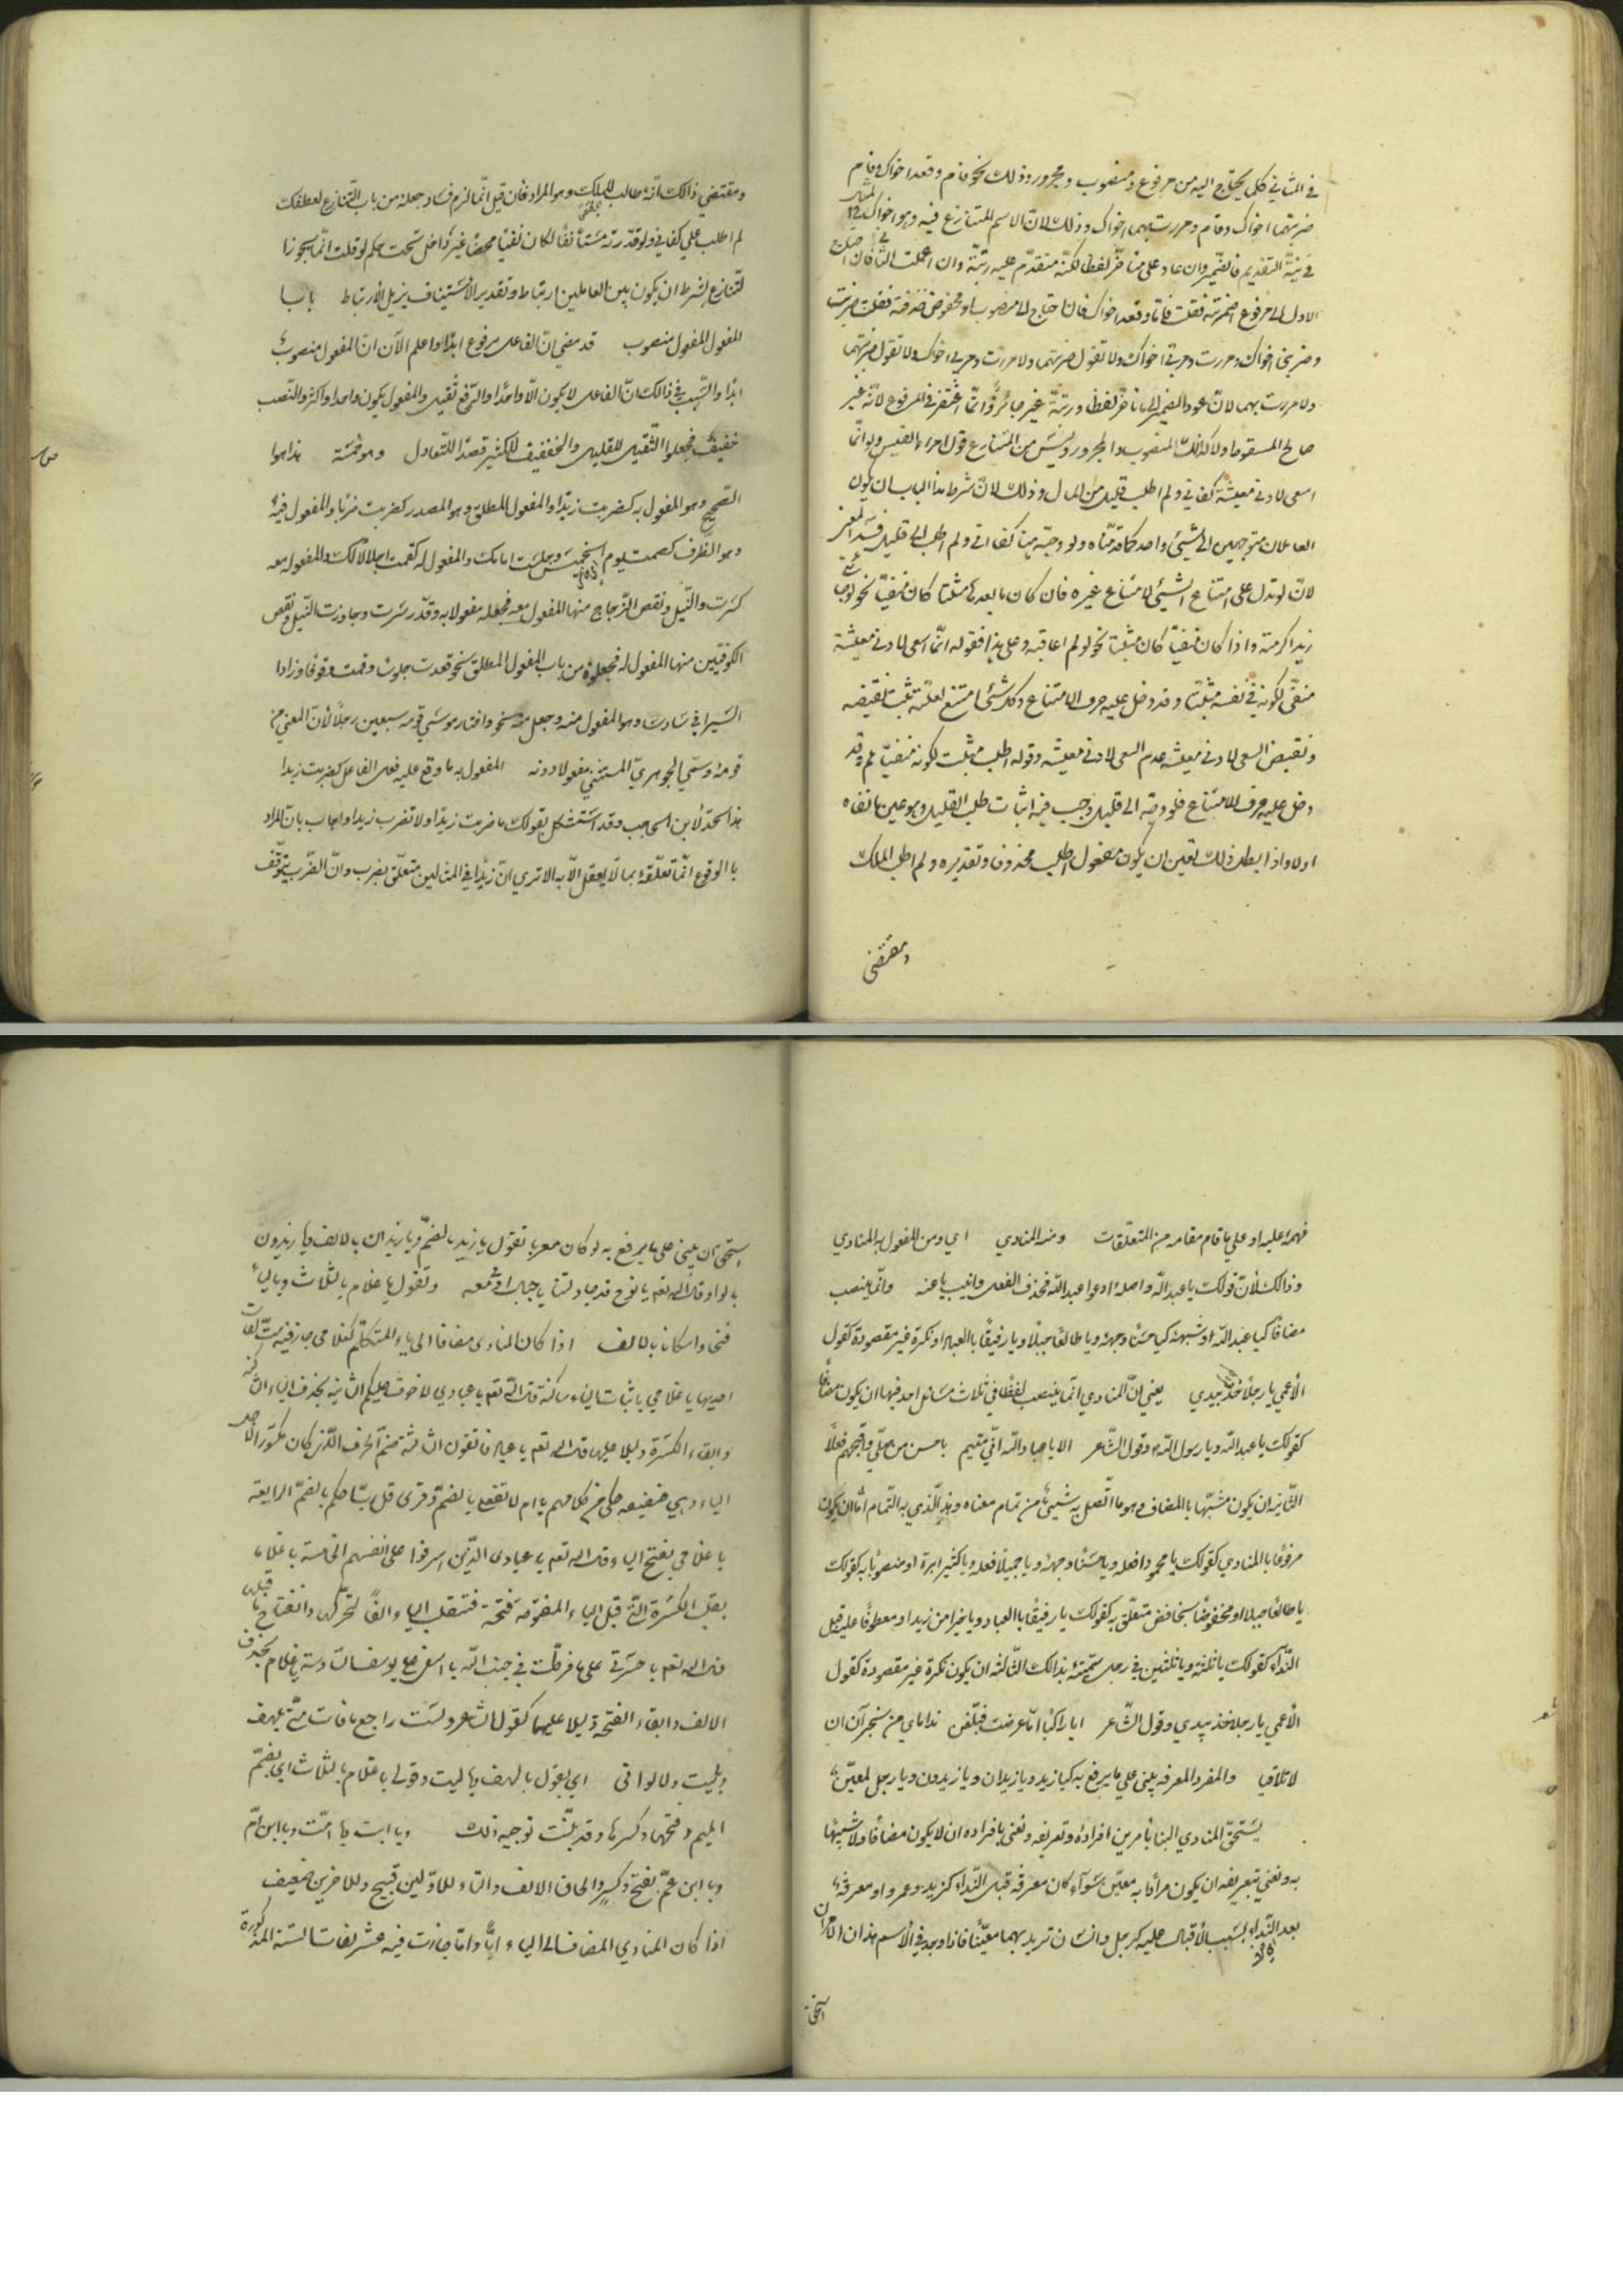 في الثاني كلما يحتاج اليه من مرفوع ومنصوب ومجرور وذلك نحو قام وقعدا اخواك وقام
ضربتهما اخواك وقام ومررت بهما اخواك وذلك لان الاسم المتنازع فيه وهو اخواك في المثال
في نيّة التقديم فالضمير وان عاد على متأخر لفظا لكنّه متقدّم عليه رتبة وان اعملت الثاني فان احتاج
الاول الى مرفوع اضمرته فقلت قاما وقعد اخواك وان احتاج الى منصوب او مخفوض حذفته فقلت ضربت
وضربني اخواك ومررت ومر بي اخواك ولا تقول ضربتهما ولا مررت ومر بي اخواك ولا تقول ضربتهما
ولا مررت بهما لان عود الضمير الى ما تأخر لفظا ورتبة غير جائز وانّما اغتفر في المرفوع لانّه غير
صالح للسقوط ولا كذلك المنصوب والمجرور وليس من التنازع قول امرء القيس ولو انّما
اسعى لادنى معيشة كفاني ولم اطلب قليل من المال وذلك لانّ شرط هذا الباب ان يكون
العاملان متوجهين الى شيئ واحد كما قدّمناه ولو وجّه هنا كفاني ولم اطلب الى قليل فسد المعنى
لانّ لو تدل على امتناع الشيئ لامتناع غيره فان كان ما بعدها مثبتا كان منفيّا نحو لو جاءني
زيد اكرمته واذا كان منفيّا كان مثبتا نحو لو لم اعاقبه وعلى هذا فقوله انّما اسعى لادنى معيشة
منفيّ لكونه في نفسه مثبتا وقد دخل عليه حرف الامتناع وكل شيئ امتنع لعلّة ثبت نقيضه
ونقيض السعى لادنى معيشة عدم السعى لادنى معيشة وقوله اطلب مثبت لكونه منفيّا بلم وقد
دخل عليه حرف الامتناع فلو وجّه الى قليل وجب فيه اثبات طلب القليل وهو عين ما نفاه
اولا واذا بطل ذلك تعين ان يكون مفعول اطلب محذوفا وتقديره ولم اطلب الملك
ومقتضى
ومقتضي ذالك انّه طالب للملك وهو المراد فان قيل انّما لزم فساد جعله من باب التنازع لعطفك
لم اطلب على كفاني ولو قدّرته مستأنفا لكان نفيا محضا غير داخل تحت حكم لو قلت انّما يجوز
التنازع بشرط ان يكون بين العاملين ارتباط وتقدير الاستيناف يزيل الارتباط باب
المفعول المفعول منصوب قد مضى انّ الفاعل مرفوع ابدا واعلم الآن انّ المفعول منصوب
ابدا والسّبب في ذالك انّ الفاعل لا يكون الّا واحدا والرّفع ثقيل والمفعول يكون واحدا واكثر والنّصب
خفيف فجعلوا الثّقيل للقليل والخفيف للكثير قصدا للتّعادل وهو خمسة هذا هو
الصّحيح وهو المفعول به كضربت زيدا والمفعول المطلق وهو المصدر كضربت ضربا والمفعول فيه
وهو الظّرف كصمت يوم الخميس وجلست امامك والمفعول له كقمت اجلالا لك والمفعول معه
كسرت والنّيل ونقص الزّجاج منها المفعول معه فجعله مفعولا به وقدّر سرت وجاوزت النّيل ونقص
الكوفيّين منها المفعول له فجعلوه من باب المفعول المطلق نحو قعدت جلوسا وقمت وقوفا وزادا
السّيرافي سادسا وهو المفعول منه وجعل منه نحو واختار موسى قومه سبعين رجلا لانّ المعنى من
قومه وسمّي الجوهريّ المستثنى مفعولا دونه المفعول به ما وقع عليه فعل الفاعل كضربت زيدا
هذا الحدّ لابن الحاجب وقد استشكل بقولك ما ضربت زيدا ولا تضرب زيدا واجاب بان المراد
بالوقوع انّما تعلّقه بما لا يعقل الّا به الا ترى انّ زيدا في المثالين متعلّق بضرب وانّ الضّرب يتوقّف
فهمه عليه او على ما قام مقامه من المتعلّقات ومنه المنادي اي ومن المفعول به المنادي
وذالك لانّ قولك يا عبد اللّه واصله ادعوا عبد اللّه فحذف الفعل وانيب يا عنه وانّما ينصب
مضافا كيا عبد اللّه او شبهه كيا حسنا وجهه ويا طالعا جبلا ويا رفيقا بالعباد او نكرة غير مقصودة كقول
الاعمي يا رجلا خذ بيدي يعني انّ المنادي انّما ينصب لفظا في ثلاث مسائل احديها ان يكون مضافا
كقولك يا عبد اللّه ويا رسول اللّه وقول الشّاعر الا يا عباد اللّه قلبي متيم باحسن من صلّي واقبحهم فعلا
الثّانية ان يكون مشبّها بالمضاف وهو ما اتّصل به شيئ من تمام معناه وهذا الّذي به التّمام امّا ان يكون
مرفوعا بالمنادي كقولك يا محمودا فعله ويا حسنا وجهه ويا جميلا فعله ويا كثيرا بره او منصوبا به كقولك
يا طالعا جبلا او مخفوضا بخافض متعلّق به كقولك يا رفيقا بالعباد ويا خيرا من زيد او معطوفا عليه قبل
النّداء كقولك يا ثلثة وثلثين في رجل سمّيته بذالك الثّالثه ان يكون نكرة غير مقصودة كقول
الاعمي يا رجلا خذ بيدي وقول الشّاعر ايا راكبا امّا عرضت فبلّغن نداماي من نجران ان
لا تلاقيا والمفرد المعرفه يبنى على ما يرفع به كيا زيد ويا زيدان ويا زيدون ويا رجل لمعيّن
يستحقّ المنادي البناء بامرين افراده وتعريفه ونعني بافراده ان لا يكون مضافا ولا شبيها
به ونعني بتعريفه ان يكون مرادا به معيّن سوآء كان معرفة قبل النّداء كزيد وعمرو او معرفة
بعد النّداء بسبب الاقبال عليه كرجل وانسان تريد بهما معيّنا فاذا وجد في الاسم هذان الامران
استحق
استحق ان يبنى على ما يرفع به لو كان معربا تقول يا زيد بالضمّ ويا زيدان بالالف ويا زيدون
بالواو قال اللّه تعم يا نوح قد جادلتنا يا جبال اوبي معه وتقول يا غلام بالثلاث وبالياء
فتحا واسكانا وبالالف اذا كان المنادى مضافا الى ياء المتكلم كغلامي جاز فيه ستّ لغات
احديها يا غلامي باثبات الياء ساكنة قال اللّه تعم يا عبادي لا خوف عليكم الثانية بحذف الياء الساكنة
وابقاء الكسرة دليلا عليها قال اللّه تعم يا عباد فاتقون الثالثة ضمّ الحرف الّذي كان مكسورا لاجل
الياء وهي ضعيفه حكي من كلامهم يا ام لا تفعلي بالضمّ وقرى قل ربّ احكم بالضمّ الرابعة
يا غلامي بفتح الياء قال اللّه تعم يا عبادي الّذين اسرفوا على انفسهم الخامسة يا غلاما
بقلب الكسرة الّتي قبل الياء المفتوحة فتحة فتنقلب الياء الفا لتحرّكها وانفتاح ما قبلها
قال اللّه تعم يا حسرتى على ما فرطت في جنب اللّه يا اسفى على يوسف السادسة يا غلام بحذف
الالف وابقاء الفتحة دليلا عليها كقول الشاعر ولست براجع ما فات منّي بلهف
ولا بليت ولا لو انّي اي بقول يا لهف ويا ليت وقولي يا غلام بالثلاث اي بضمّ
الميم وفتحها وكسرها وقد بيّنت توجيه ذلك ويا ابت ويا امّت ويا ابن امّ
ويا ابن عمّ بفتح وكسر والحاق الالف والياء للاوّلين قبيح وللاخرين ضعيف
اذا كان المنادي المضاف الى الياء ابا او امّا جازت فيه عشر لغات الستة المذكورة